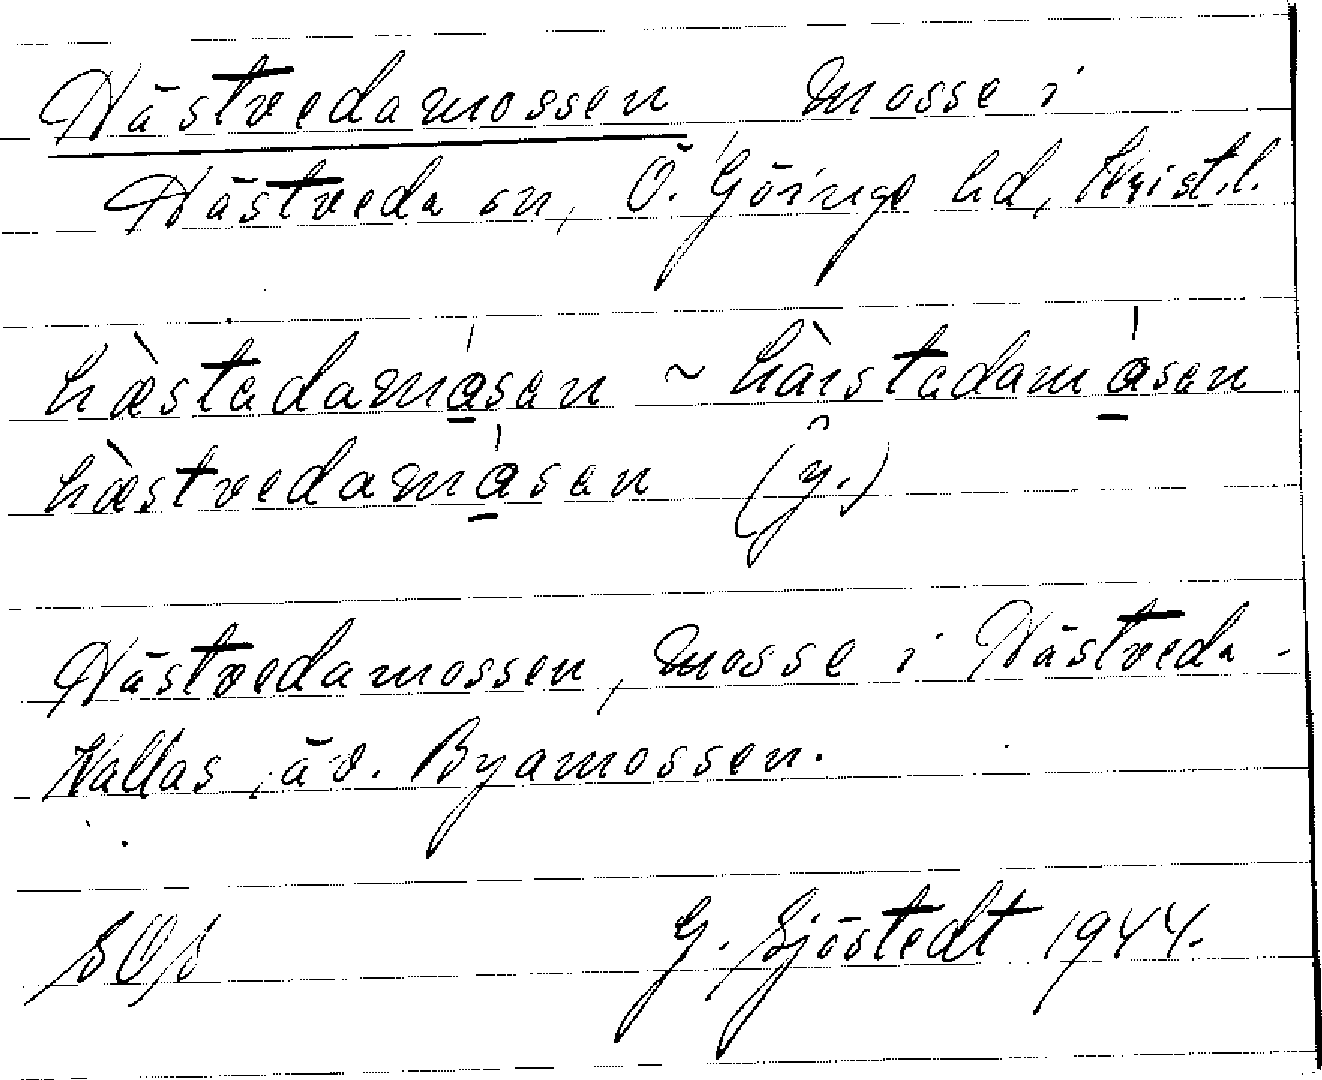 Hästvedamossen Mosse i
Hästveda sn, Ö. Göinge hd, Krist.l.
hæ̀stadamåsen ~ hàistadamåsen
hæ̀stvedamåsen (y.)
Hästvedamossen, mosse i Hästveda-
Kallas äv. Byamossen.
SOS G. Sjöstedt 1944.